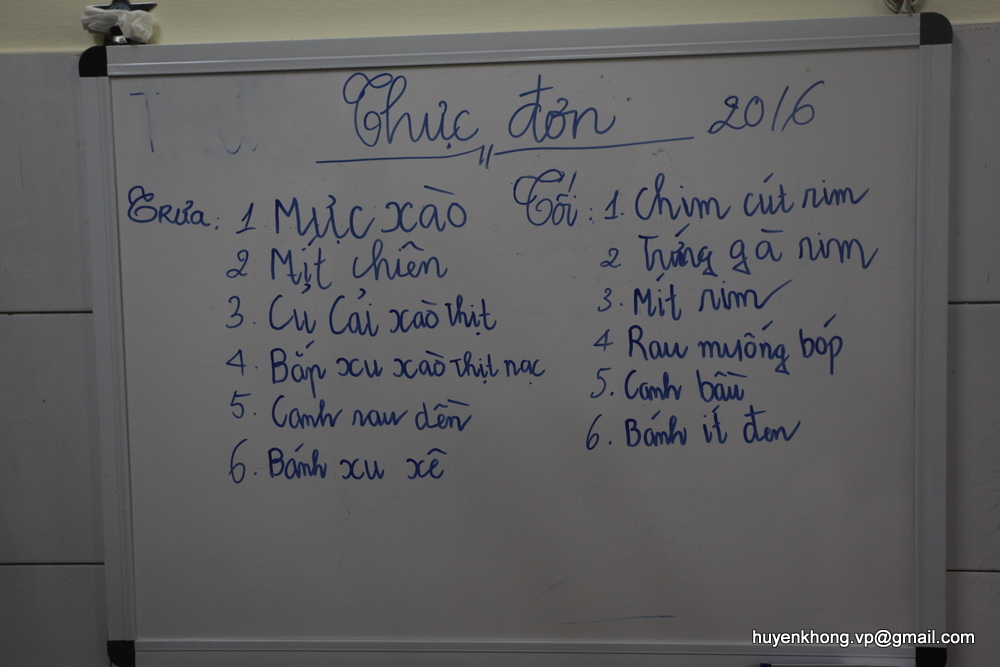 Thực đơn 20/6
Trưa: 1 Mực xào
2 Mít chiên
3. Củ Cải xào thịt
4. Bắp xu xào thịt nạc
5. Canh rau dền
6. Bánh xu xê
Tối: 1. Chim cút rim
2 Trứng gà rim
3. Mít rim
4 Rau muống bóp
5. Canh bầu
6. Bánh ít đen
huyenkhong.vp@gmail.com